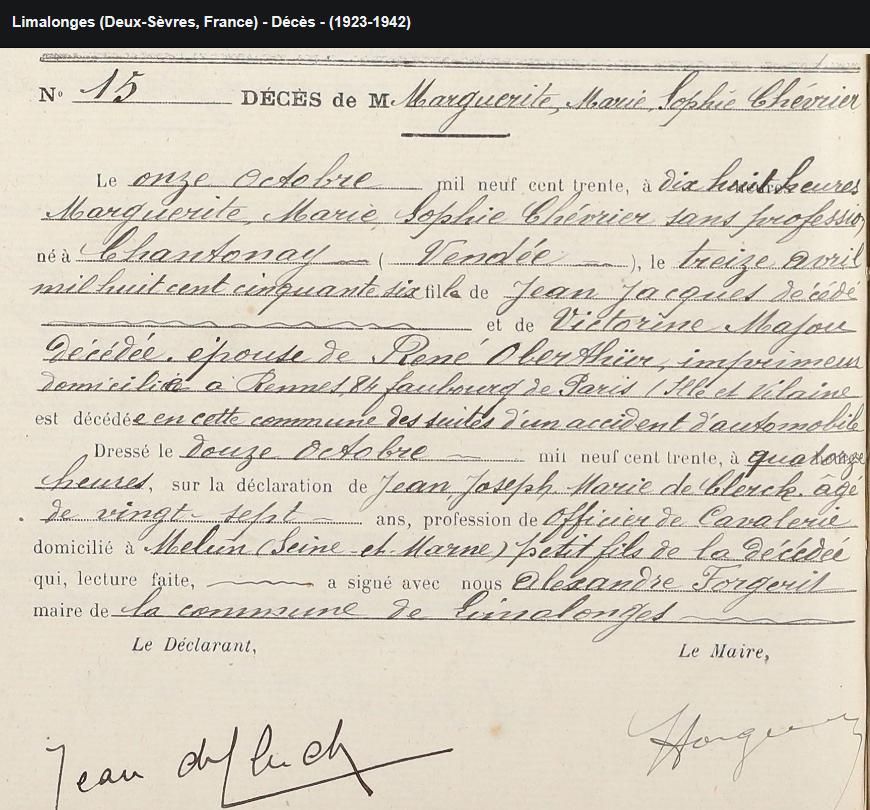 Limalonges (Deux-Sèvres, France) - Décès - (1923-1942)
N° 15 DÉCÈS de M Marguerite, Marie, Sophie Chévrier
Le onze Octobre mil neuf cent trente, à dix huit heures
Marguerite, Marie, Sophie Chévrier sans profession
né à Chantonay ( Vendée ), le treize avril
mil huit cent cinquante six fille de Jean Jacques décédé
et de Victorine Majou
décédée. épouse de René Oberthür, imprimeur
domiciliée a Rennes, 84 faubourg de Paris (Ille et Vilaine
est décédée en cette commune des suites d'un accident d'automobile
Dressé le douze Octobre mil neuf cent trente, à quatorze
heures, sur la déclaration de Jean, Joseph, Marie de Clerck. âgé
de vingt-sept ans, profession de Officier de Cavalerie
domicilié à Melun (Seine-et-Marne) petit fils de la décédée
qui, lecture faite, a signé avec nous Alexandre Forgerit
maire de la commune de Limalonges
Le Déclarant, Le Maire,
Jean de Clerck